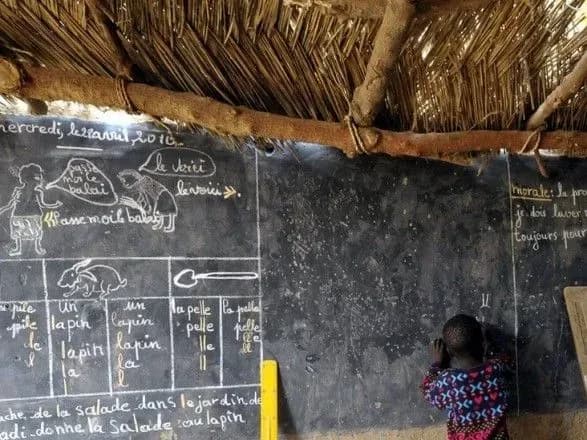 mercredi, le 28 avril, 201
passe
moi le
balai
le voici
le voici »
« Passe moi le balai
pile
pile
le
l
un
lapin
lapin
la
un
lapin
lapin
la
l
la pelle
pelle
lle
ll
la pelle
pelle
ll
de la salade dans le jardin de
donne la salade au lapin
morale: la pro
je dois laver
toujours pour